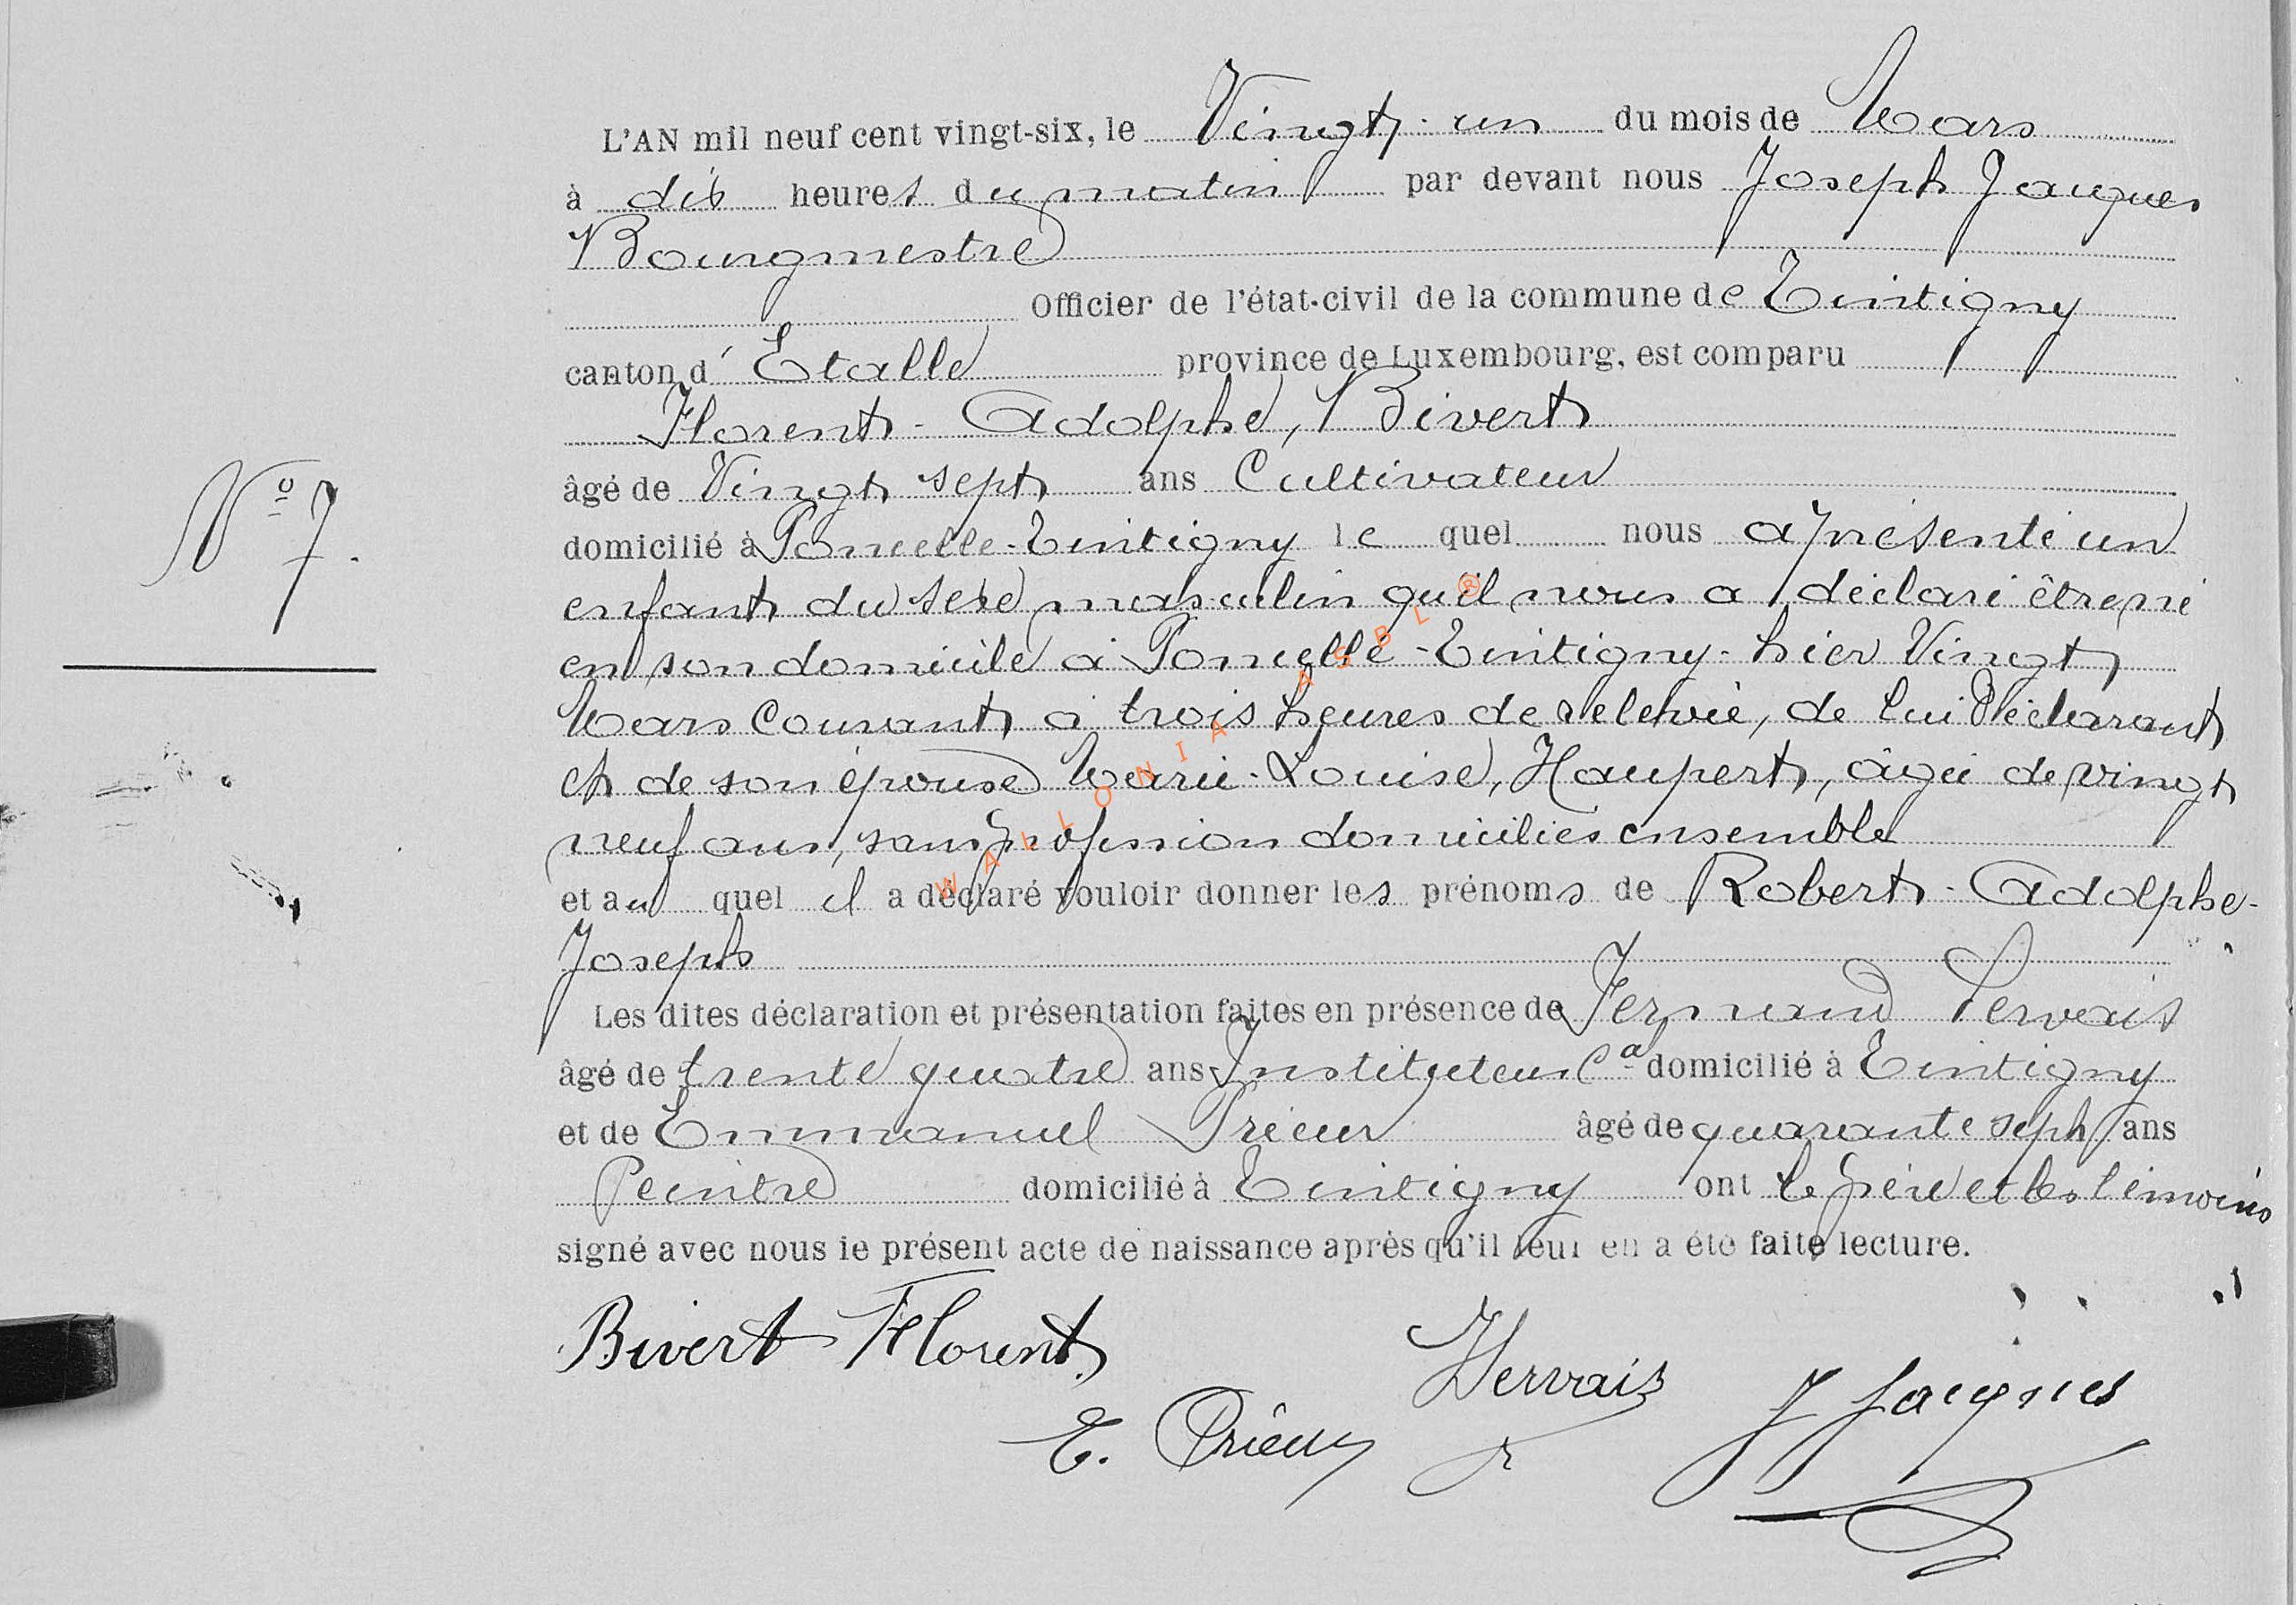 L'AN mil neuf cent vingt-six, le Vingt-un du mois de Mars
à dix heures du matin par devant nous Joseph Jacques
Bourgmestre
Officier de l'état-civil de la commune de Tintigny
canton d'Etalle province de Luxembourg, est comparu
Florent-Adolphe, Bivert
âgé de Vingt sept ans Cultivateur
N° 7.
domicilié à Poncelle-Tintigny lequel nous a présenté un
enfant du sexe masculin qu'il nous a déclaré être né
en son domicile à Poncelle-Tintigny-hier Vingt
Mars Courant à trois heures de relevée, de lui Déclarant
et de son épouse Marie-Louise, Haupert, âgée de vingt
neuf ans, sans profession domiciliés ensemble
et auquel il a déclaré vouloir donner les prénoms de Robert-Adolphe-
Joseph
Les dites déclaration et présentation faites en présence de Fernand Servais
âgé de trente quatre ans Instituteur Cal domicilié à Tintigny
et de Emmanuel Prieur âgé de quarante sept ans
Peintre domicilié à Tintigny ont le père et les témoins
signé avec nous le présent acte de naissance après qu'il leur en a été faite lecture.
Bivert Florent
FServais
J Jacques
E. Prieur
WALLONIA ASBL ®